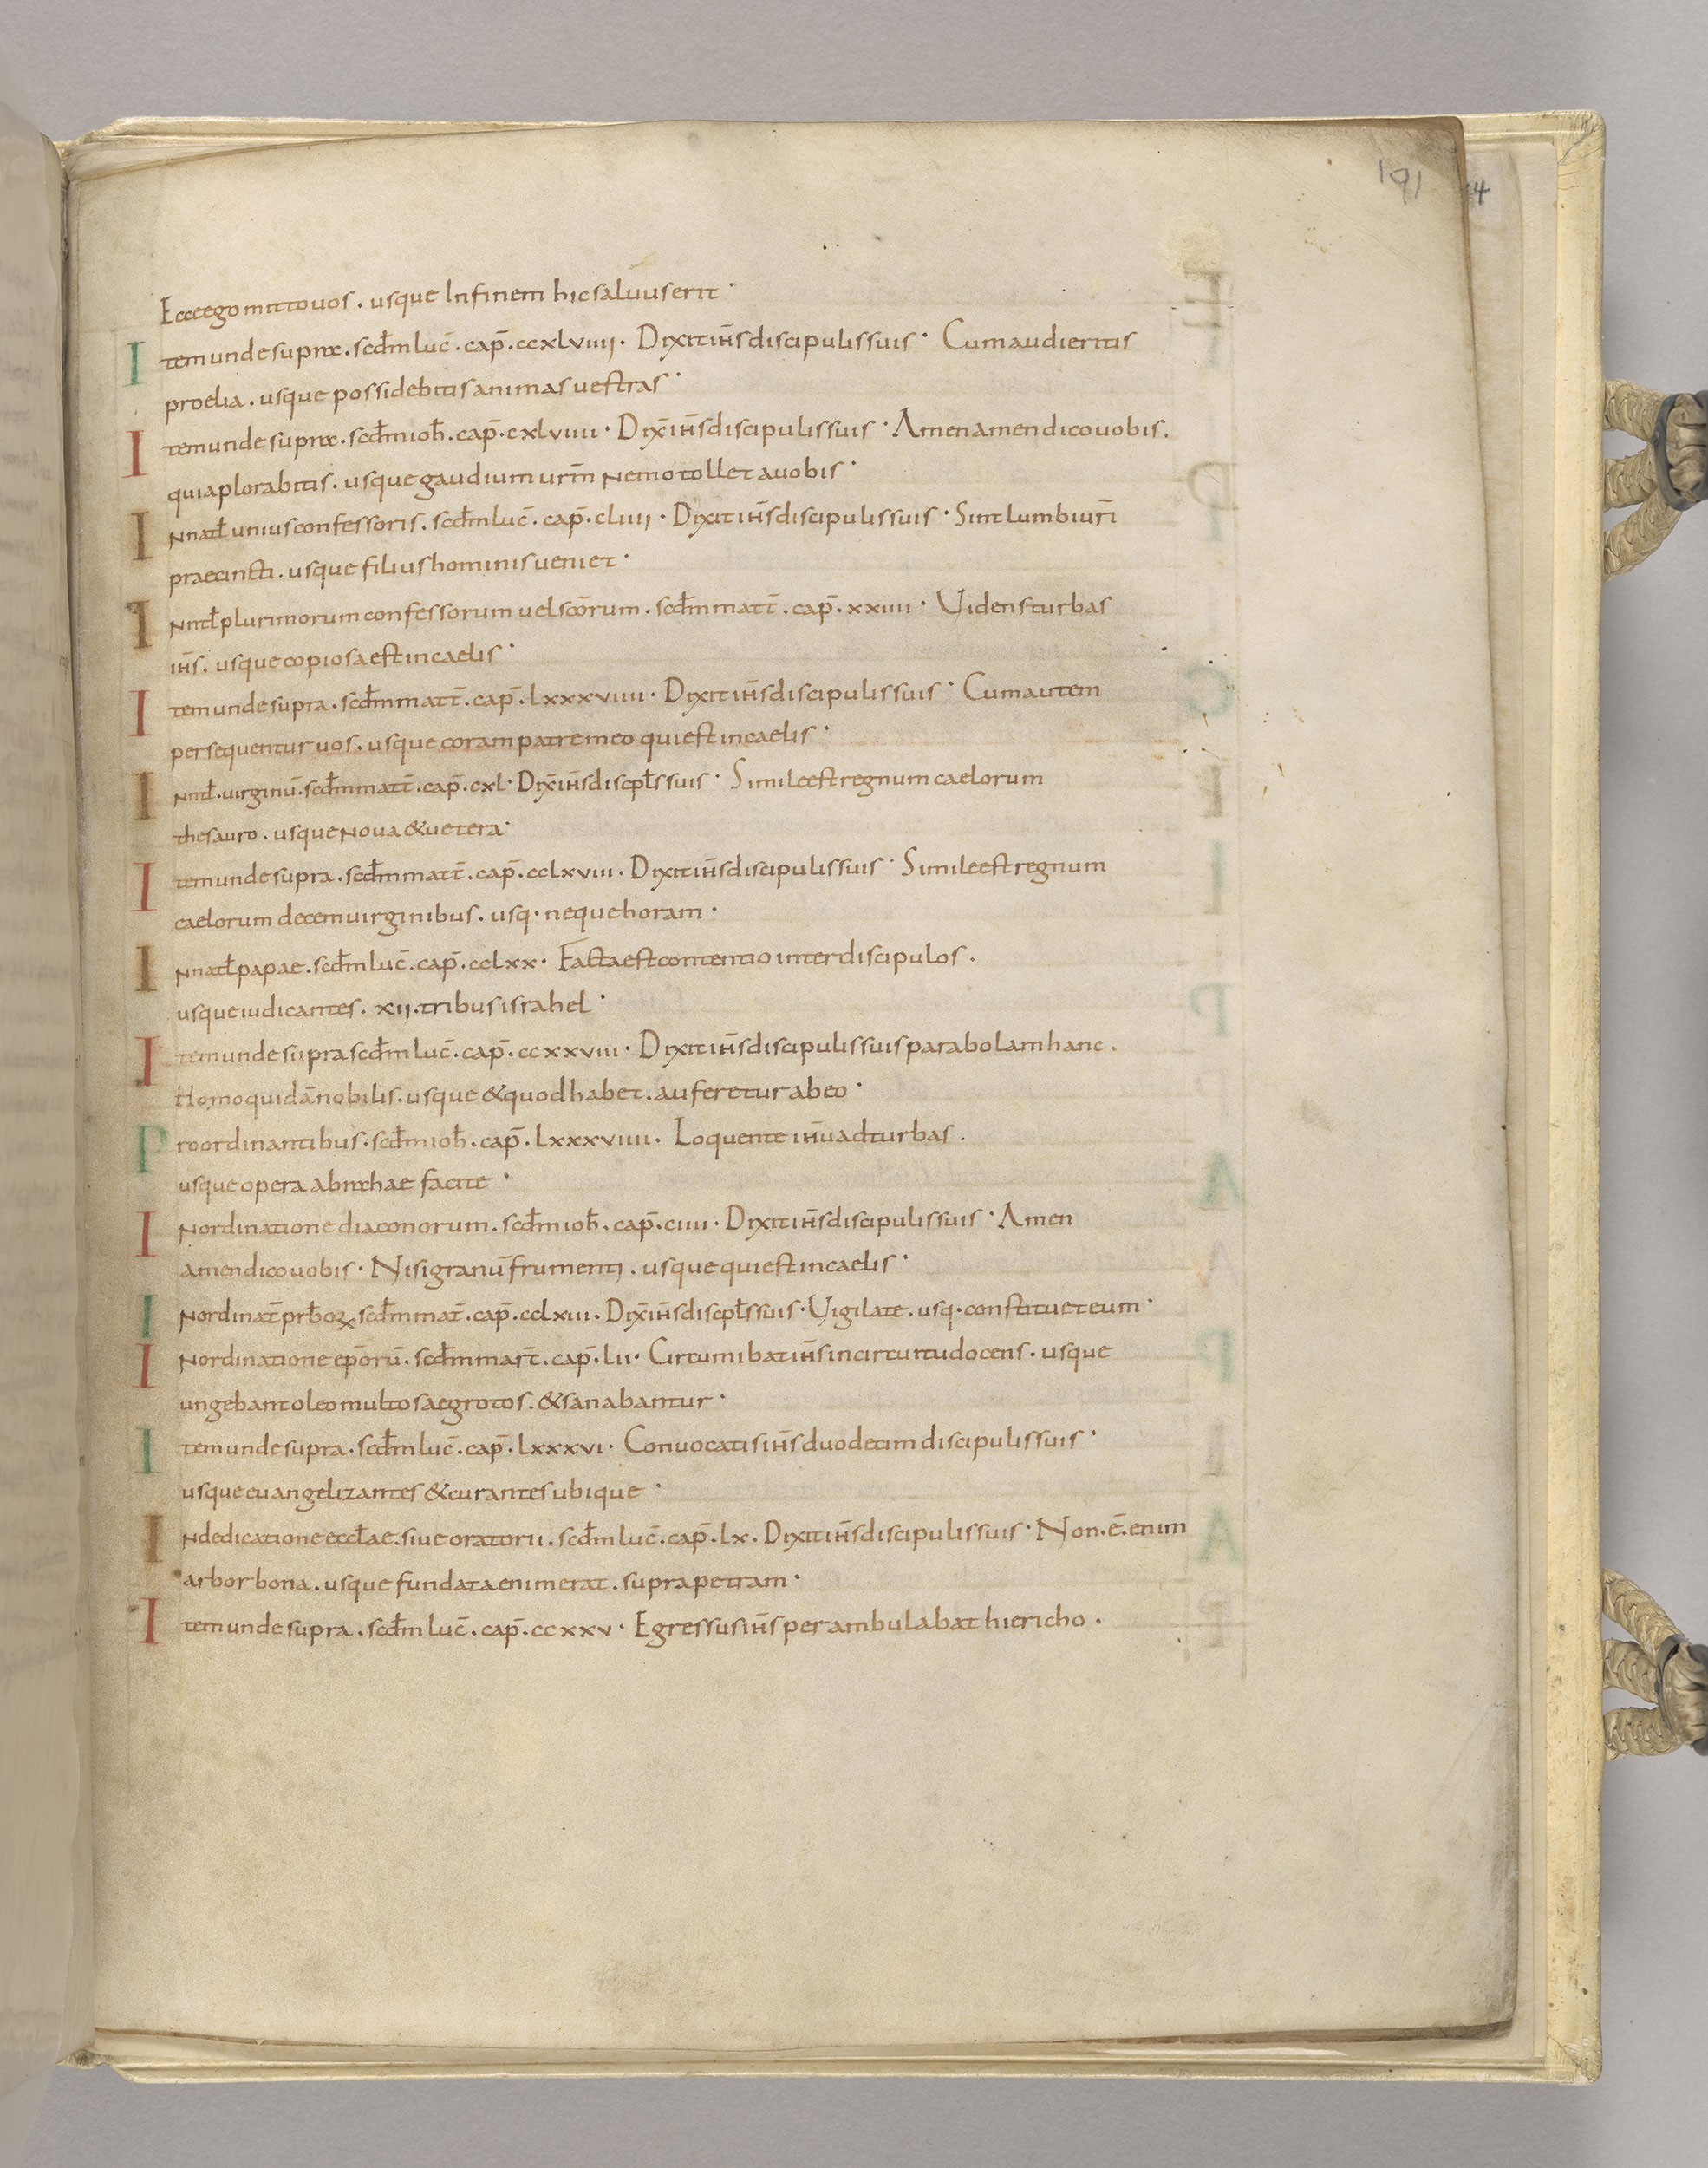 191
4
Ecce ego mitto uos . usque In finem hic saluus erit ·
Item unde supra . scd̄m luc̄ . cap̄ . ccxlviiii · Dixit ih̄s discipulis suis · Cum audieritis
proelia . usque possidebitis animas uestras ·
Item unde supra . scd̄m ioh̄ . cap̄ . cxlviiii · Dix̄ ih̄s discipulis suis · Amen amen dico uobis .
quia plorabitis . usque gaudium ur̄m nemo tollet a uobis ·
In nat̄l unius confessoris . scd̄m luc̄ . cap̄ . cliiii · Dixit ih̄s discipulis suis · Sint lumbi ur̄i
praecincti . usque filius hominis ueniet ·
In nat̄l plurimorum confessorum uel sc̄orum . scd̄m matt̄ . cap̄ . xxiiii · Uidens turbas
ih̄s . usque copiosa est in caelis ·
Item unde supra . scd̄m matt̄ . cap̄ . lxxxviiii · Dixit ih̄s discipulis suis · Cum autem
persequentur uos . usque coram patre meo qui est in caelis ·
In nat̄l . uirginū . scd̄m matt̄ . cap̄ . cxl · Dix̄ ih̄s discipl̄s suis · Simile est regnum caelorum
thesauro . usque noua & uetera ·
Item unde supra . scd̄m matt̄ . cap̄ . cclxviii · Dixit ih̄s discipulis suis · Simile est regnum
caelorum decem uirginibus . usq · neque horam ·
In nat̄l papae . scd̄m luc̄ . cap̄ . cclxx · Facta est contentio inter discipulos .
usque iudicantes . xii . tribus israhel ·
Item unde supra scd̄m luc̄ . cap̄ . ccxxviii · Dixit ih̄s discipulis suis parabolam hanc .
Homo quidā nobilis . usque & quod habet . auferetur ab eo ·
Pro ordinantibus . scd̄m ioh̄ . cap̄ . lxxxviiii · Loquente ih̄u ad turbas .
usque opera abrahae facite ·
In ordinatione diaconorum . scd̄m ioh̄ . cap̄ . ciiii · Dixit ih̄s discipulis suis · Amen
amen dico uobis · Nisi granū frumenti . usque qui est in caelis ·
In ordinat̄ prb̄oꝝ scd̄m mat̄ . cap̄ . cclxiii · Dix̄ ih̄s discpl̄s suis · Uigilate . usq · constituet eum ·
In ordinatione ep̄orū . scd̄m mart̄ . cap̄ . lii · Circumibat ih̄s in circuitu docens . usque
ungebant oleo multos aegrotos . & sanabantur ·
Item unde supra . scd̄m luc̄ . cap̄ . lxxxvi · Conuocatis ih̄s duodecim discipulis suis ·
usque euangelizantes & curantes ubique ·
In dedicatione eccl̄ae . siue oratorii . scd̄m luc̄ . cap̄ . lx . Dixit ih̄s discipulis suis · Non . ē . enim
arbor bona . usque fundata enim erat . supra petram ·
Item unde supra . scd̄m luc̄ . cap̄ . ccxxv · Egressus ih̄s perambulabat hiericho .